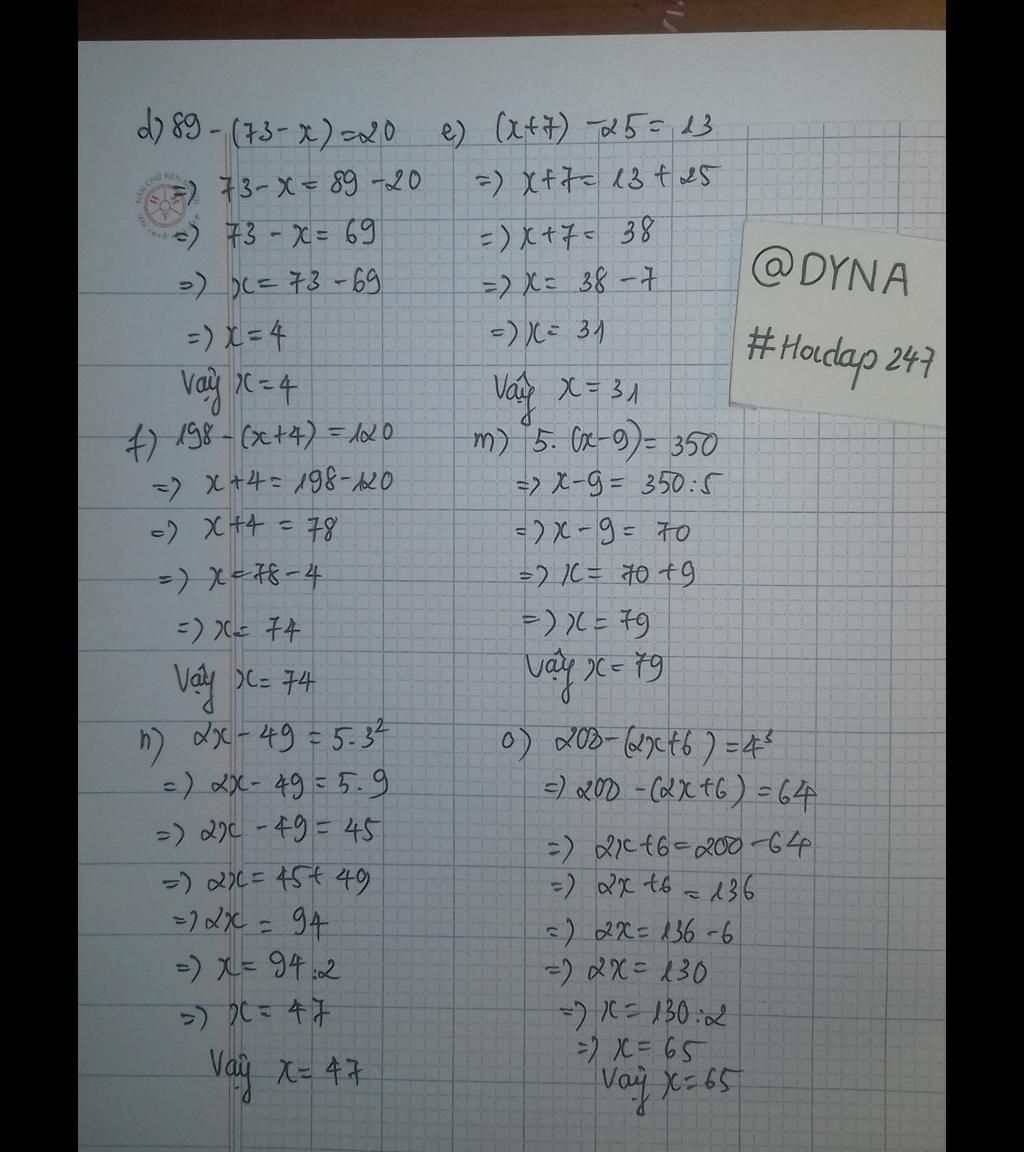 d) 89 - (73 - x) = 20
=> 73 - x = 89 - 20
=> 73 - x = 69
=> x = 73 - 69
=> x = 4
Vậy x = 4
e) (x+7) - 25 = 13
=> x+7 = 13 + 25
=> x+7 = 38
=> x = 38 - 7
=> x = 31
Vậy x = 31
@DYNA
#Hoidap 247
f) 198 - (x+4) = 120
=> x+4 = 198 - 120
=> x+4 = 78
=> x = 78 - 4
=> x = 74
Vậy x = 74
m) 5. (x-9) = 350
=> x-9 = 350:5
=> x - 9 = 70
=> x = 70 + 9
=> x = 79
Vậy x = 79
n) 2x - 49 = 5.3²
=> 2x - 49 = 5.9
=> 2x - 49 = 45
=> 2x = 45 + 49
=> 2x = 94
=> x = 94:2
=> x = 47
Vậy x = 47
o) 200 - (2x+6) = 4³
=> 200 - (2x+6) = 64
=> 2x+6 = 200 - 64
=> 2x+6 = 136
=> 2x = 136 - 6
=> 2x = 130
=> x = 130:2
=> x = 65
Vậy x = 65